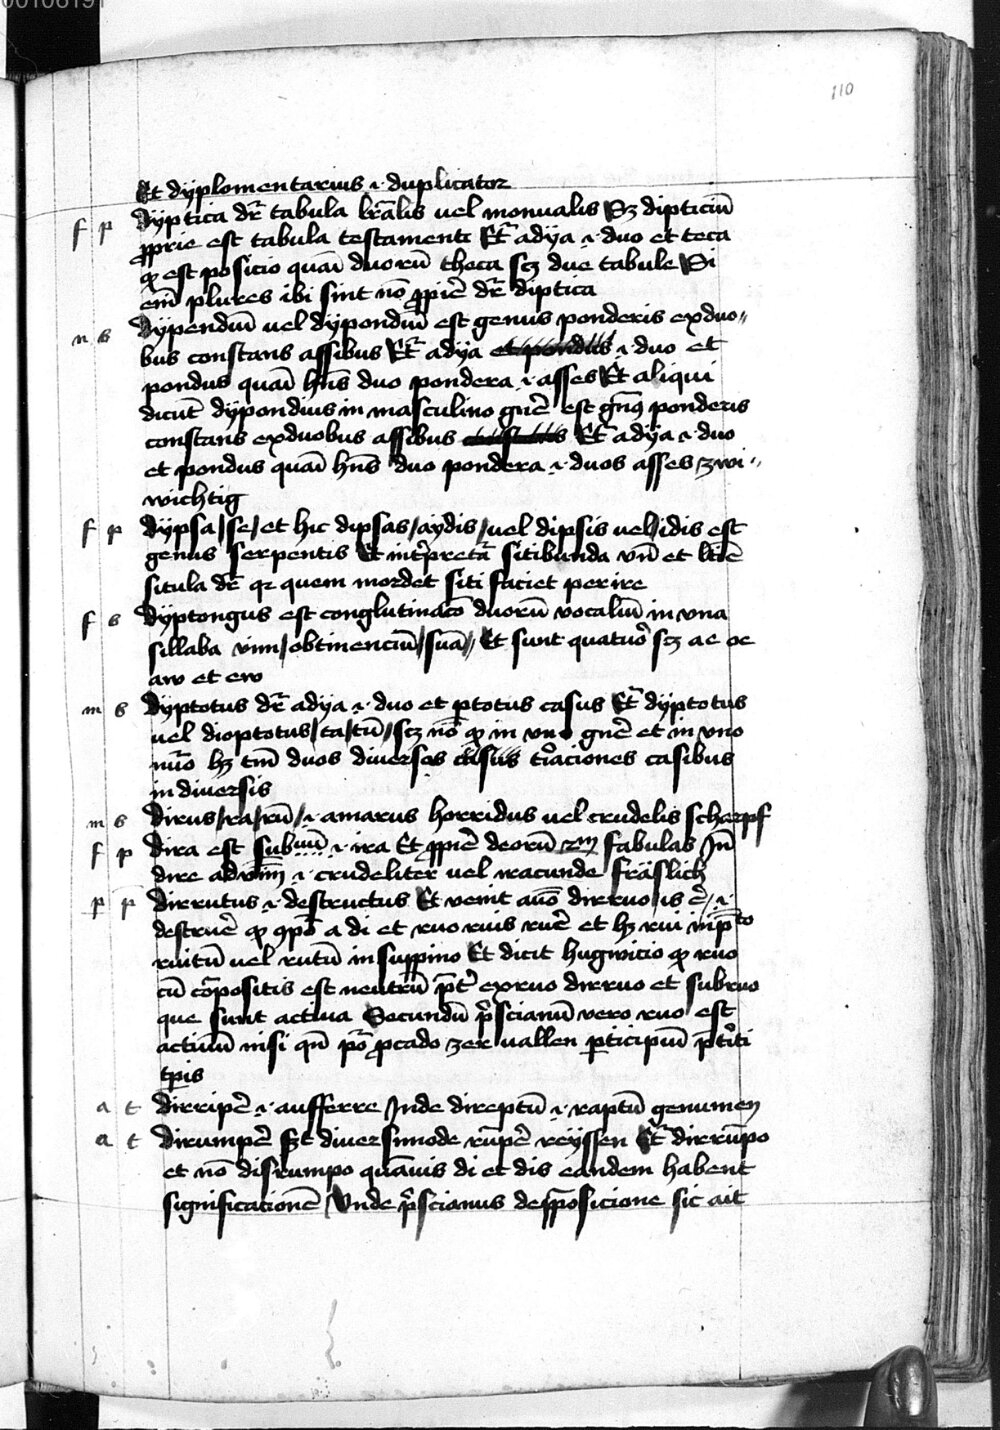 110
Et dyplomentarius .i. duplicator
f p Dyptica dr̄ tabula lr̄alis uel monualis Sz dipticiū
ꝓprie est tabula testamenti Et̄ a dya .i. duo et teca
ꝙ est posicio quaī duorū theca scz due tabule Si
em̄ plures ibi sint nō ꝓpiē dr̄ diptica
n s Dypendiū uel dypondiū est genus ponderis ex duo〃
bus constans assibus Et̄ a dya .i. duo et
pondus quaī hn̄s duo pondera .i. asses Et aliqui
dicūt dypondius in masculino gn̄e est gn̄us ponderis
constans ex duobus assibus Et̄ a dya .i. duo
et pondus quaī hn̄s duo pondera .i. duos asses zwi〃
wichtig
f p Dypsa/se/et hic dipsas/aydis/uel dipsis uel/idis est
genus serpentis Et int̄pretat̄ sitibunda vn̄ et
situla dr̄ qz quem mordet siti faciet perire
f s Dyptongus est conglutinacō duorū vocaliū in vna
sillaba vim/obtinenciū/suā〃 Et sunt quatuor scz ae oe
aw et ew
m s Dyptotus dr̄ a dya .i. duo et ptotus casus Et̄ dyptotus
uel dioptotus/ta/tū/scz nō ꝙ in vno gn̄e et in vno
nūo hz tm̄ duos diuersos casibus
in diuersis
m s Dirus/ra/rū/.i. amarus horridus uel crudelis scharpf
f p Dira est .i. ira Et ꝓpiē deorū fabulas Jn̄
dire .i. crudeliter uel iracunde fräslich
p p̄ Dirrutus .i. destructus Et venit a dirruo is .i.
destruē̄ ꝙ a di et ruo ruis ruē̄ et hz rui
ruitū uel rutū in suppino Et dicit hugwicio ꝙ ruo
cū cōpositis est neutrū p̄t exruo dirruo et subruo
que sunt actiua Secundū p̄scianū vero ruo est
actiuū nisi qn̄ ꝓcado zer uallen ꝑticipiū
tp̄is
a t Dirripē̄ .i. aufferre Jnde direptū .i. raptū genumen
a t Dirumpē̄ diuersimode rūpē̄ reyssen Et̄ dirrūpo
et nō disrumpo quāuis di et dis eandem habent
significationē Vnde p̄scianus sic ait